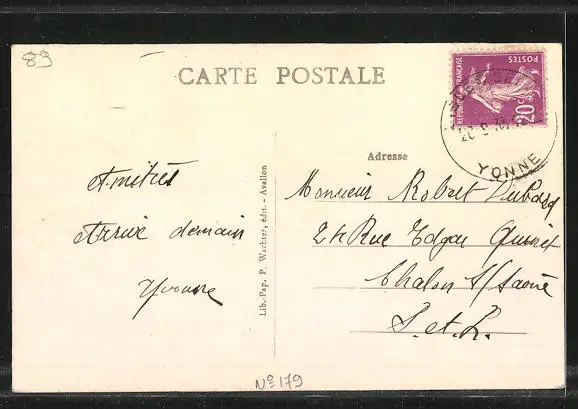 89
CARTE POSTALE
REPUBLIQUE FRANÇAISE
POSTES
20c
YONNE
Adresse
Amitiés
Arrive demain
Yvonne
Lib. Pap. P. Wachter, édit. - Avallon
Monsieur Robert Dubourg
24 Rue Edgar Quinet
Chalon s/Saône
S. et. L.
No 179